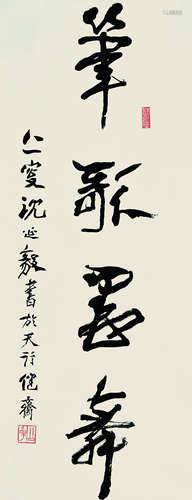 筆歌墨舞
八一叟沈延毅書於天行健齋